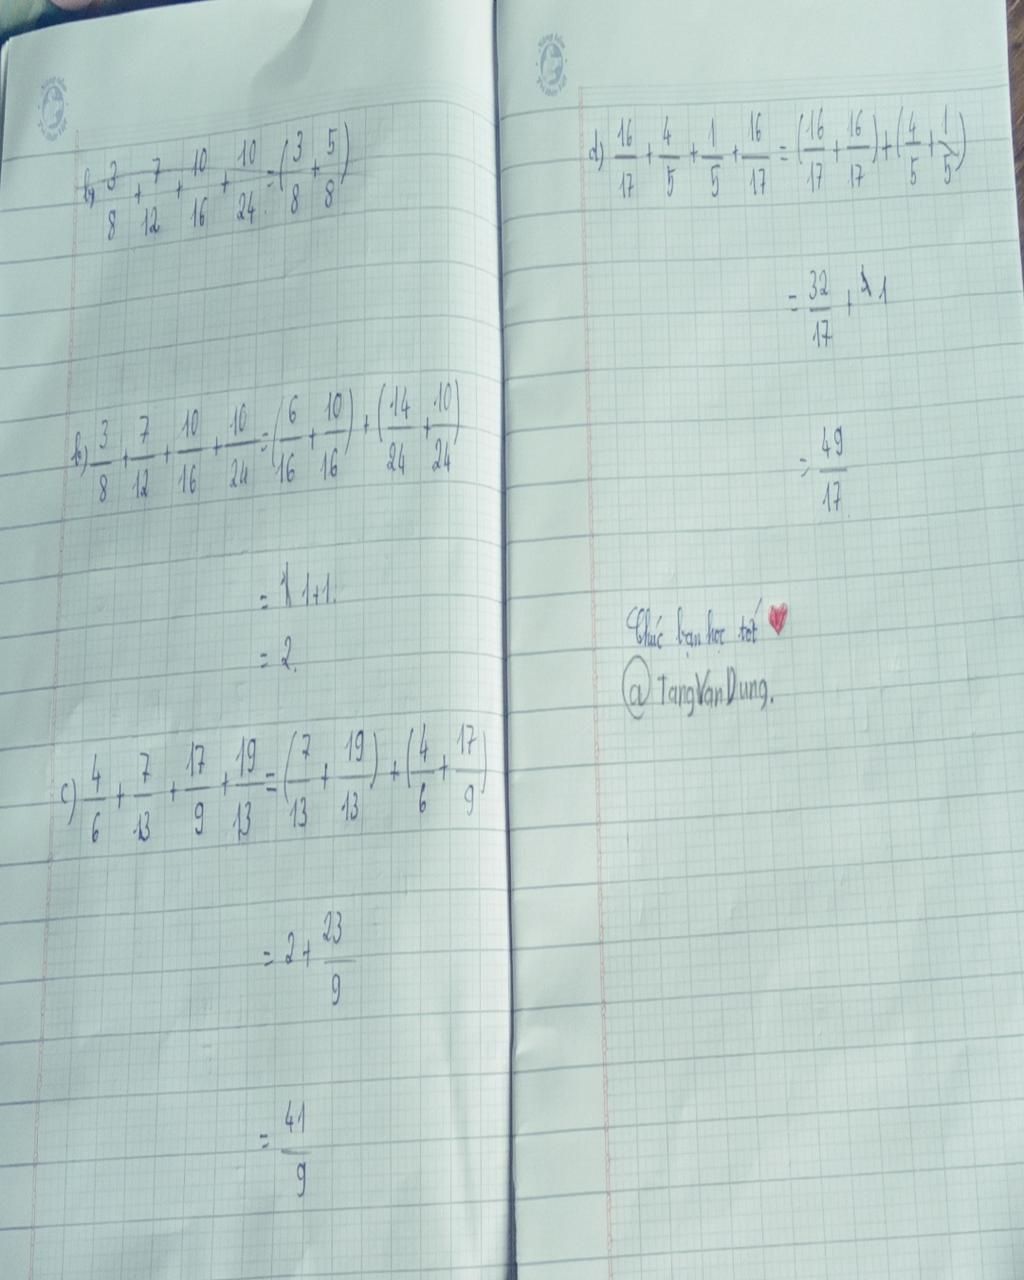 b) 3/8 + 7/12 + 10/16 + 10/24 = (3/8 + 5/8)
b) 3/8 + 7/12 + 10/16 + 10/24 = (6/16 + 10/16) + (14/24 + 10/24)
= 1+1.
= 2.
c) 4/6 + 7/13 + 17/9 + 19/13 = (7/13 + 19/13) + (4/6 + 17/9)
= 2 + 23/9
= 41/9
d) 16/17 + 4/5 + 1/5 + 16/17 = (16/17 + 16/17) + (4/5 + 1/5)
= 32/17 + 1
= 49/17
Chúc bạn học tốt ♥
@TangVanDung.